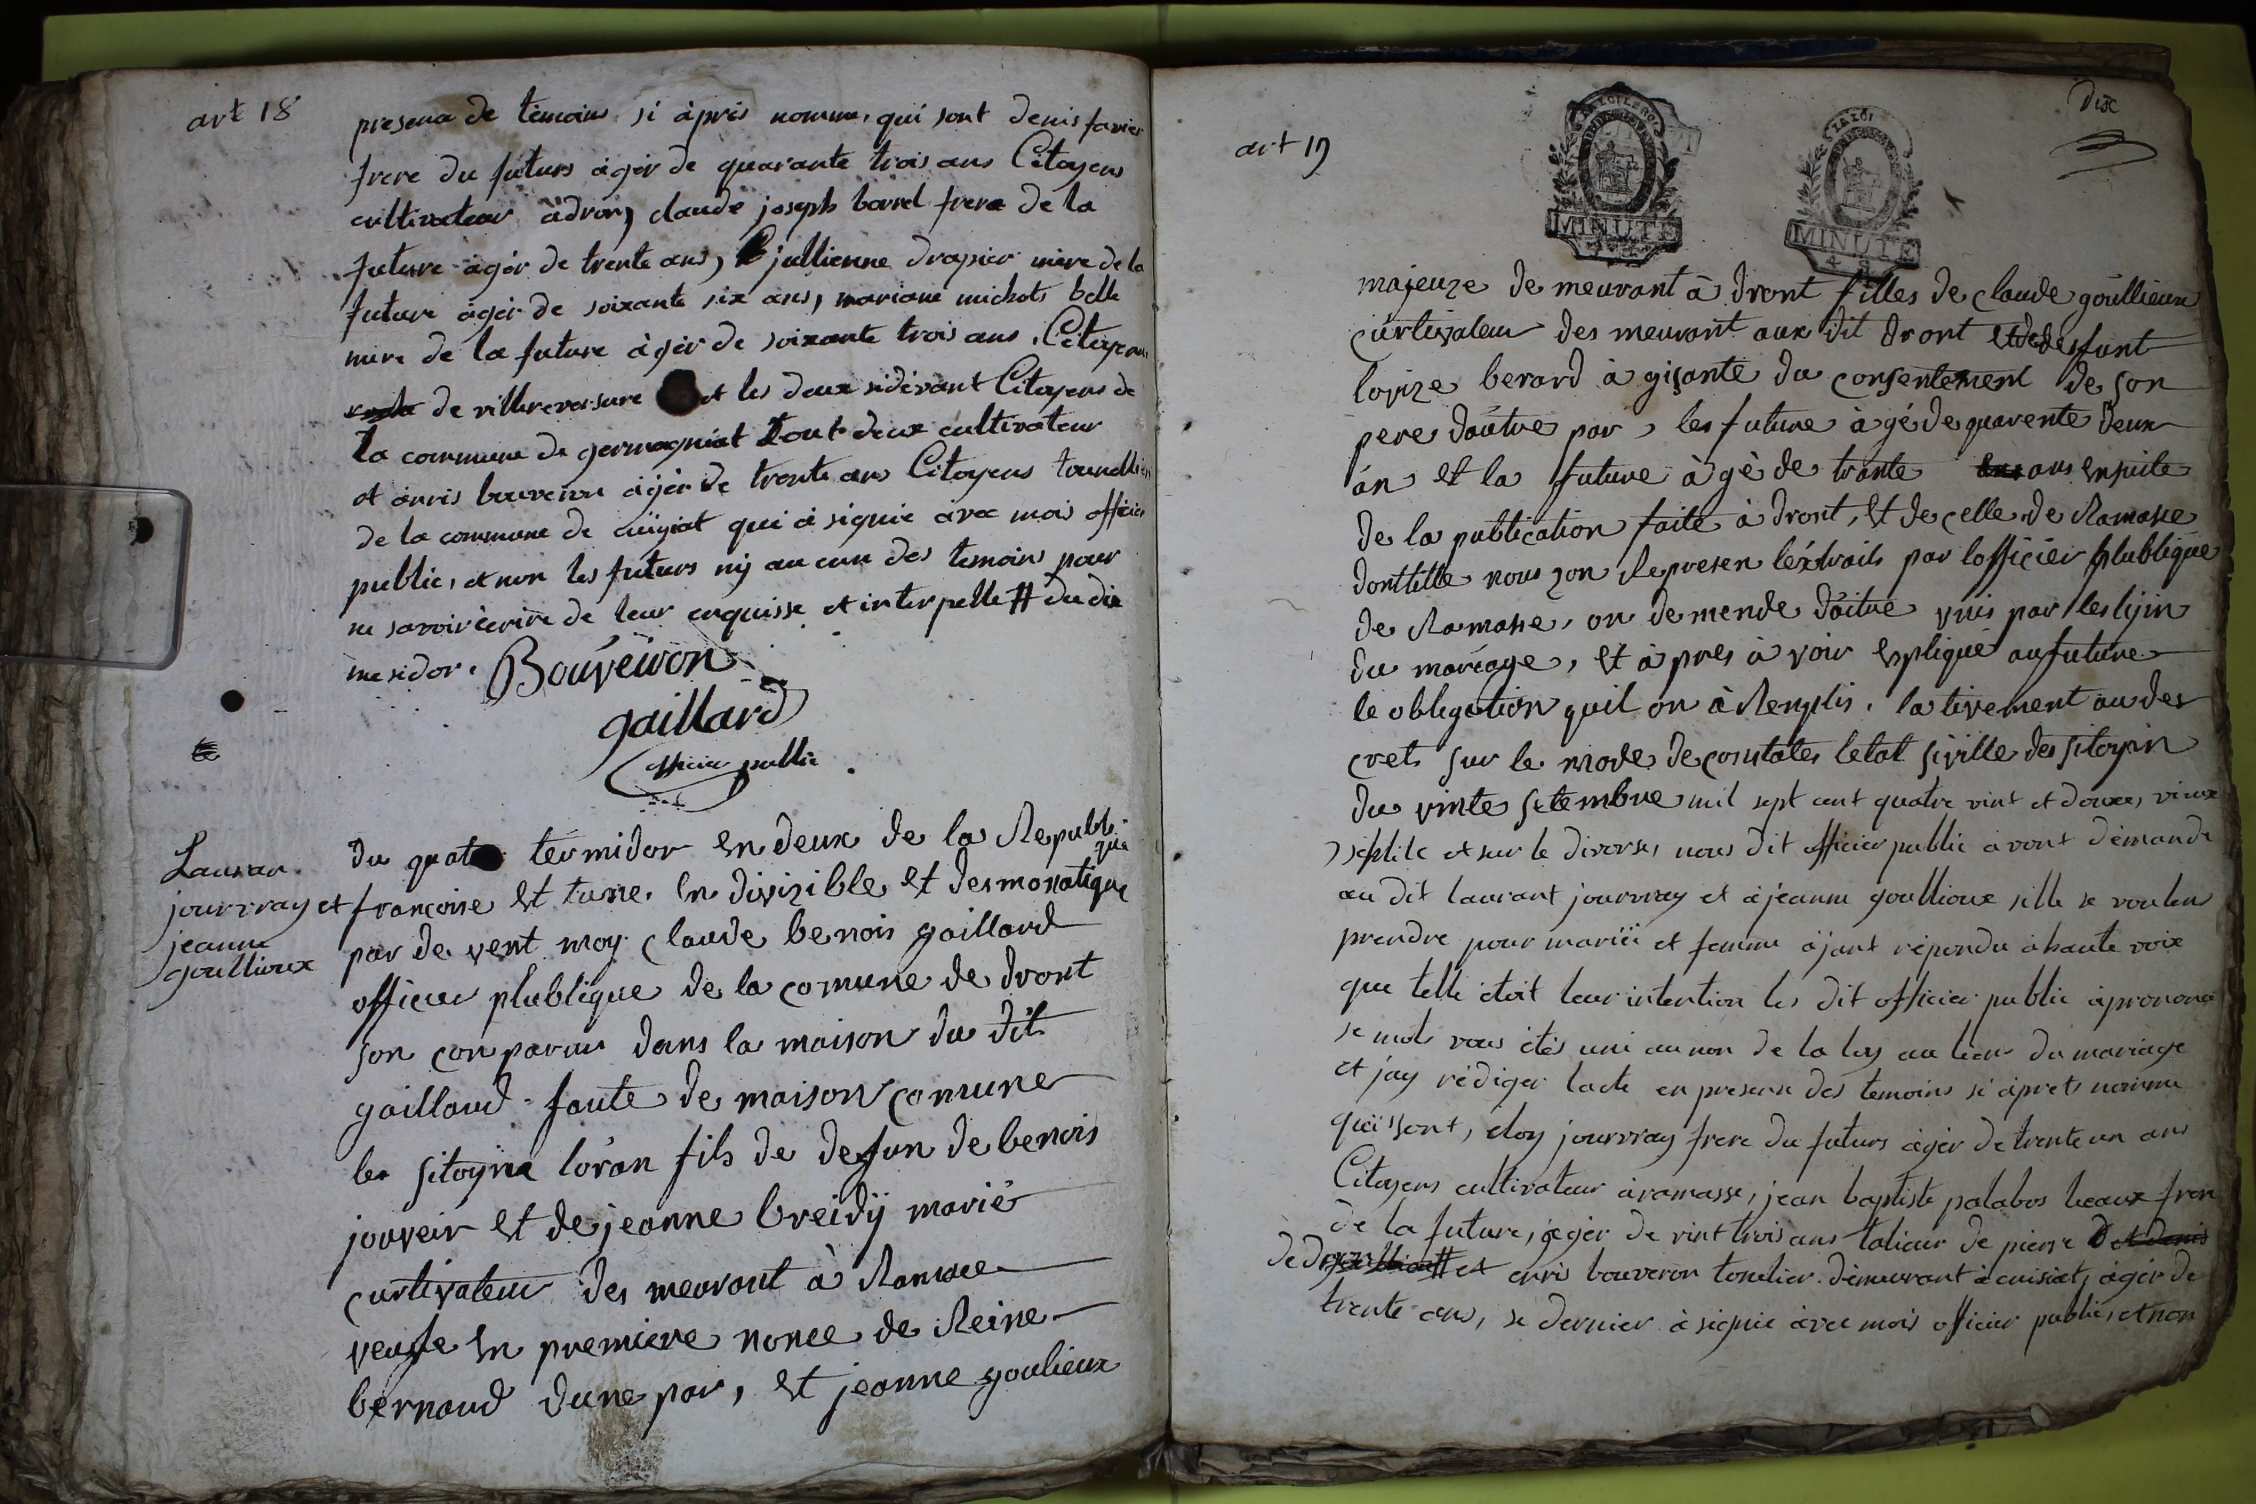 art 18
presena de témoins si àpris nomme, qui sont denis favier
frere du futurs àgér de quarante trois ans Citoyens
cultivateur àdron, claude joseph borrel frere de la
future àgér de trente ans, jullienne drapier mère de la
future àgér de soixante six ans, mariane michots belle
mire de la future àgér de soixante trois ans, Citoyens
de villereversure et les deux sidévant Citoyens de
la commune de germagniat tout deux cultivateur
et anris bouveron àgér de trente ans Citoyens tounellier
de la commune de cüysiat qui à signié àvec mois officier
public, et non les futurs nÿ au cun des temoins pour
ne savoir écrire de leur enquisse et interpelle # du dix
mesidor.
Bouveiron
gaillard
officier public
Lauran
jourvray et
jeanne
goullioux
du quatre termidor en deux de la Republique
françoise et tune, en divizible et desmoratique
par de vent moy claude benois gaillard
officier plublique de la comune de dront
son con parus dans la maison du dit
gaillard faute de maison comune
les sitoyne loran fils de defun de benois
jouveir et de jeanne breidÿ marié
curtivateur des meurant à Ramace
veufe en premiere nonce de Reine
bernaud dune par, et jeanne goulieux
art 19
LA LOI LE ROI
MINUTE
LA LOI
MINUTE
Dix
majeuze de meurant à dront filles de claude goullieux
curtivateur des meurant aux dit dront et de desfunt
lovize berard à gisante du consentement de son
pere daûtre par, les future à gé de quarente deux
àn et la future à gè de trante ans ensuite
de la publication faite à dront, et de celle de Ramasse
dont telle nous zon Represen léxtrails par lofficier plublique
de Ramasse, on demende daitre vnis par les lijin
du mariage, et à pres à voir expliqué au future
le obligation quil on à Remplis, la tivement au des
cret sur le mode de constater letat siville des sitoyin
du vinte setembre mil sept cent quatre vint et douxe, vieux
stile et sur le diverse, nous dit officier public àvont démande
au dit laurant jourvray et àjeanne goullioux sille se voulen
prendre pour mariïe et femme àjant répondu àhaute voix
que telle étoit leur intention les dit officier public àprononcé
se mots vous étés uni au non de la loy au lien du mariage
et jay rédiger lacte en presenn des temoins si àprets nomme
qui sont, eloy jourvray frere du futurs àgér de trente un ans
Citoyens cultivateur àramasse, jean baptiste palabos beaux frere
de la future, àgér de vint trois ans talieur de pierre
de et enris bouveron tonelier démeurant àcuisiat, àgér de
trente ans, se dernier à signié àvec mois officier public, et non